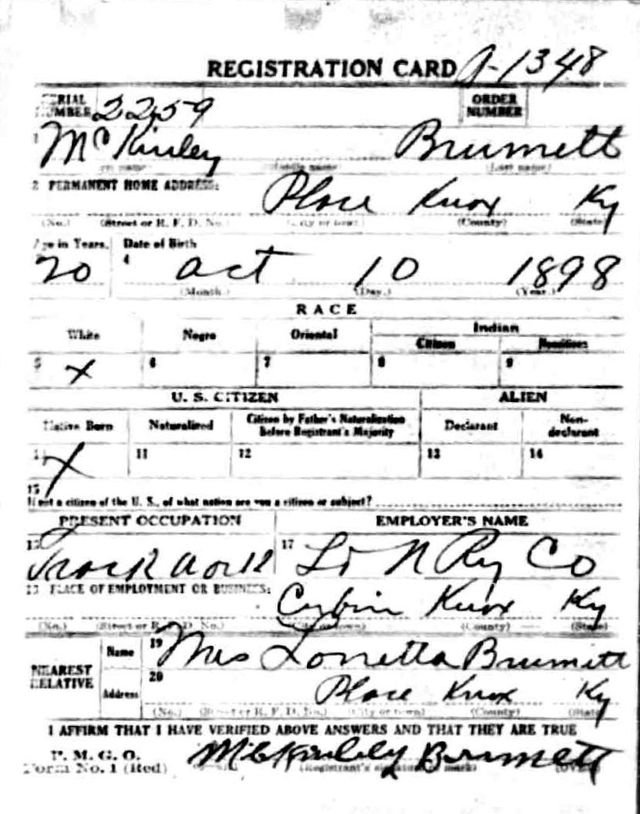 REGISTRATION CARD A-1348
SERIAL NUMBER 2259 ORDER NUMBER
1 McKinley Brumett
(First name) (Middle name) (Last name)
2 PERMANENT HOME ADDRESS: Place Knox Ky
(No.) (Street or R. F. D. No.) (City or town) (County) (State)
Age in Years. Date of Birth
20 4 Oct 10 1898
(Month.) (Day.) (Year.)
RACE
White Negro Oriental Indian
Citizen Noncitizen
5 X 6 7 8 9
U. S. CITIZEN ALIEN
Native Born Naturalized Citizen by Father's Naturalization Before Registrant's Majority Declarant Non-declarant
X 11 12 13 14
15
If not a citizen of the U. S., of what nation are you a citizen or subject?
PRESENT OCCUPATION EMPLOYER'S NAME
Track Work 17 L & N Ry Co
PLACE OF EMPLOYMENT OR BUSINESS: Knox Ky
(No.) (Street or R. F. D. No.) (City or town) (County) (State)
NEAREST RELATIVE Name 19 Mrs Lorretta Brumett
Address 20 Place Knox Ky
(No.) (Street or R. F. D. No.) (City or town) (County) (State)
I AFFIRM THAT I HAVE VERIFIED ABOVE ANSWERS AND THAT THEY ARE TRUE
P. M. G. O.
Form No. 1 (Red) McKinley Brumett
(Registrant's signature or mark) (OVER)